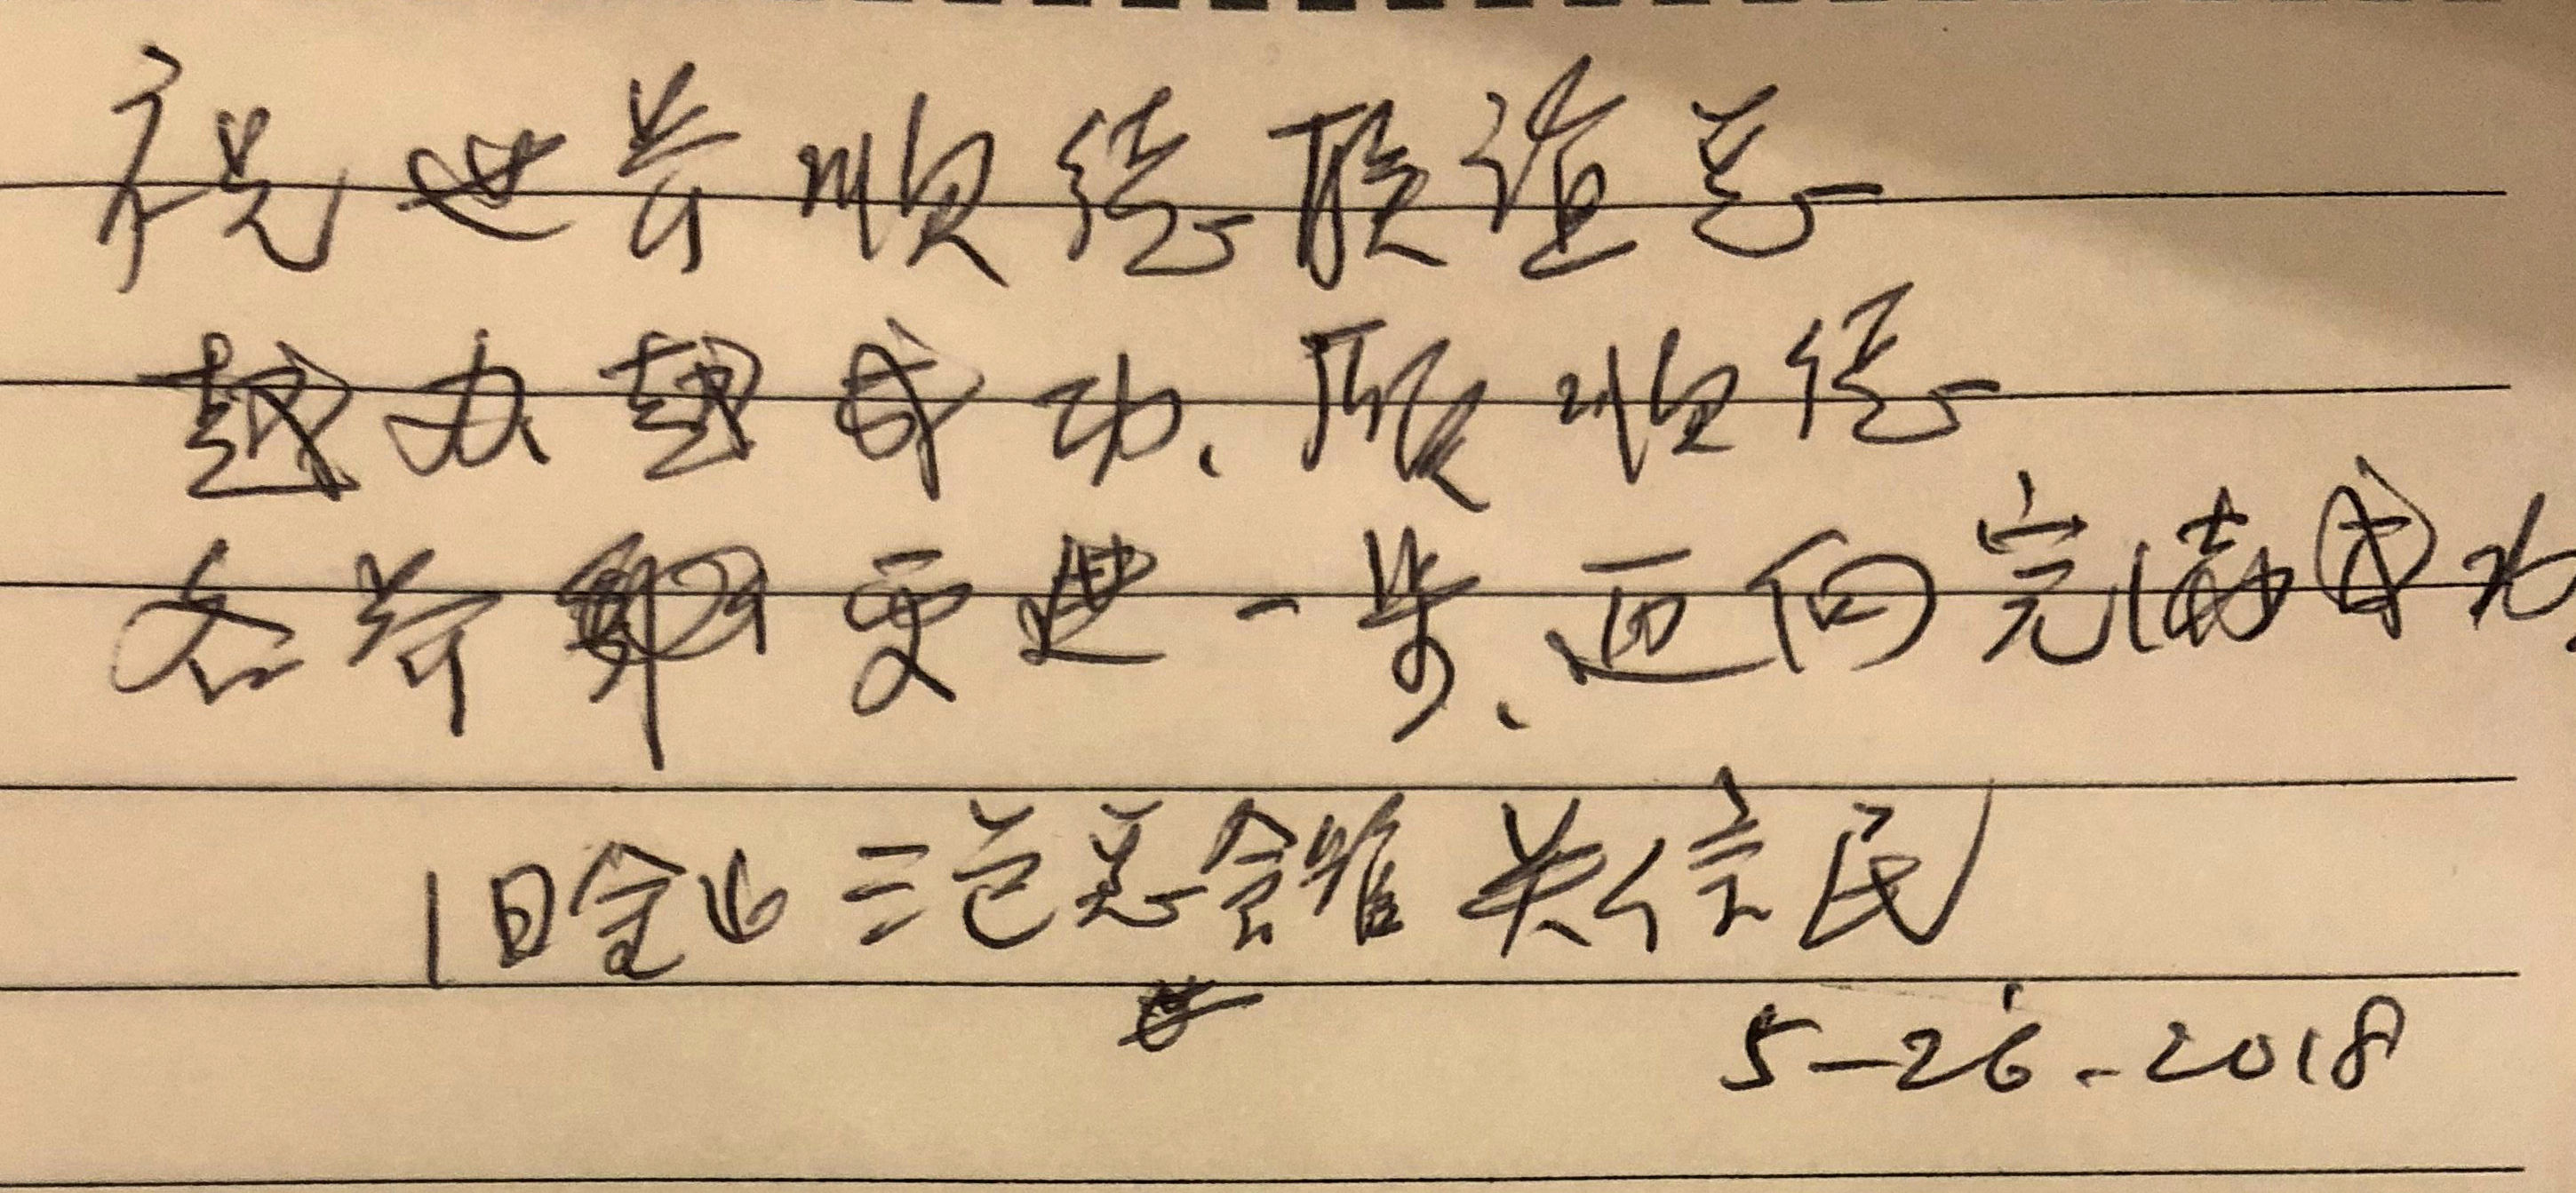 祝世界顺德联谊总
越办越成功、服顺德
各界 更进一步、迈向完满成功.
旧金山三邑总会馆 关信民
5-26-2018